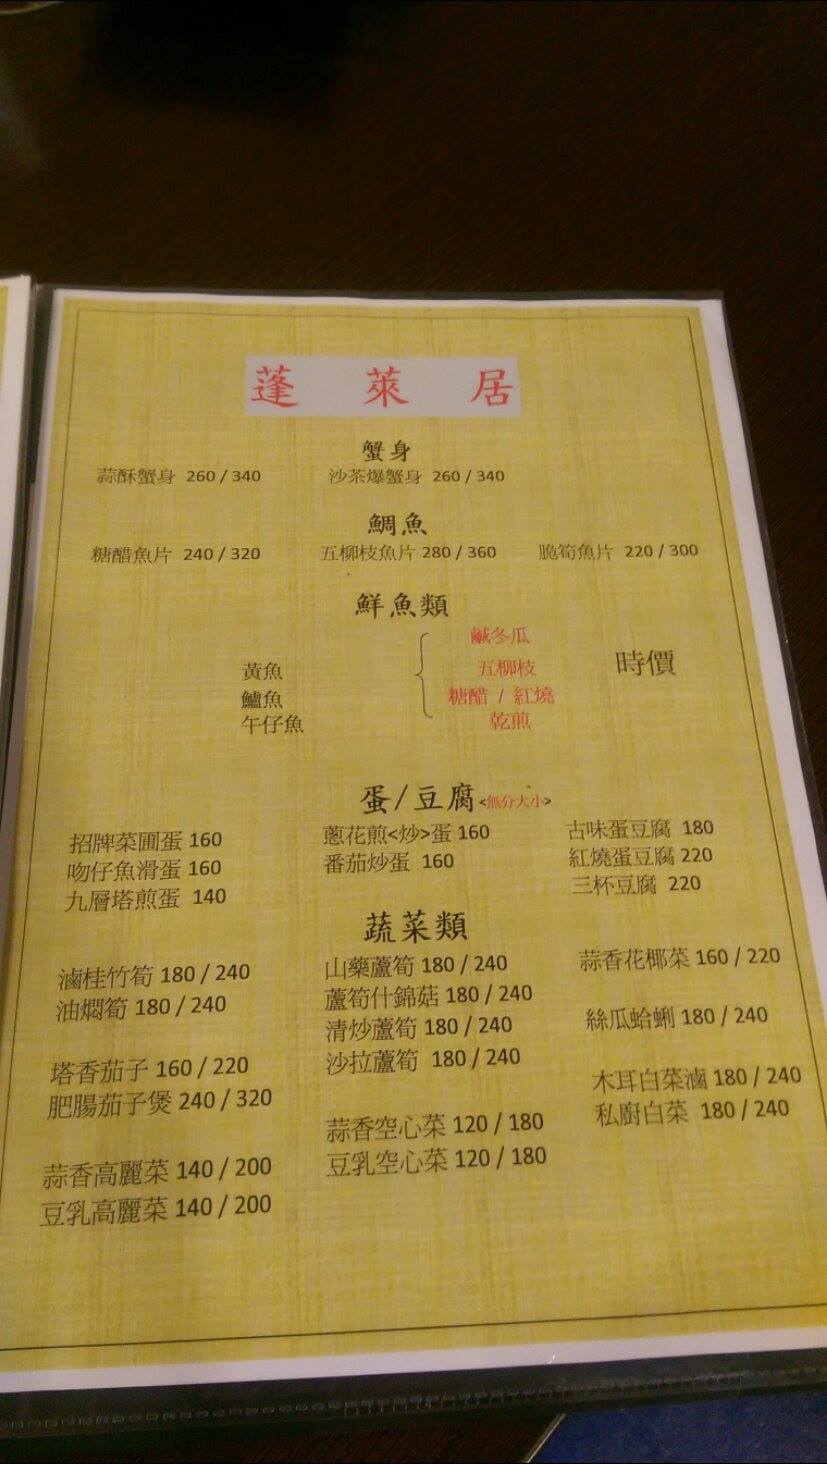 蓬萊居
蟹身
蒜酥蟹身 260 / 340 沙茶爆蟹身 260 / 340
鯛魚
糖醋魚片 240 / 320 五柳枝魚片 280 / 360 脆筍魚片 220 / 300
鮮魚類
鹹冬瓜
黃魚 五柳枝 時價
鱸魚 糖醋 / 紅燒
午仔魚 乾煎
蛋/豆腐<無分大小>
招牌菜圃蛋 160 蔥花煎<炒>蛋 160 古味蛋豆腐 180
吻仔魚滑蛋 160 番茄炒蛋 160 紅燒蛋豆腐 220
九層塔煎蛋 140 三杯豆腐 220
蔬菜類
滷桂竹筍 180 / 240 山藥蘆筍 180 / 240 蒜香花椰菜 160 / 220
油燜筍 180 / 240 蘆筍什錦菇 180 / 240
清炒蘆筍 180 / 240 絲瓜蛤蜊 180 / 240
塔香茄子 160 / 220 沙拉蘆筍 180 / 240
肥腸茄子煲 240 / 320 木耳白菜滷 180 / 240
蒜香空心菜 120 / 180 私廚白菜 180 / 240
蒜香高麗菜 140 / 200 豆乳空心菜 120 / 180
豆乳高麗菜 140 / 200